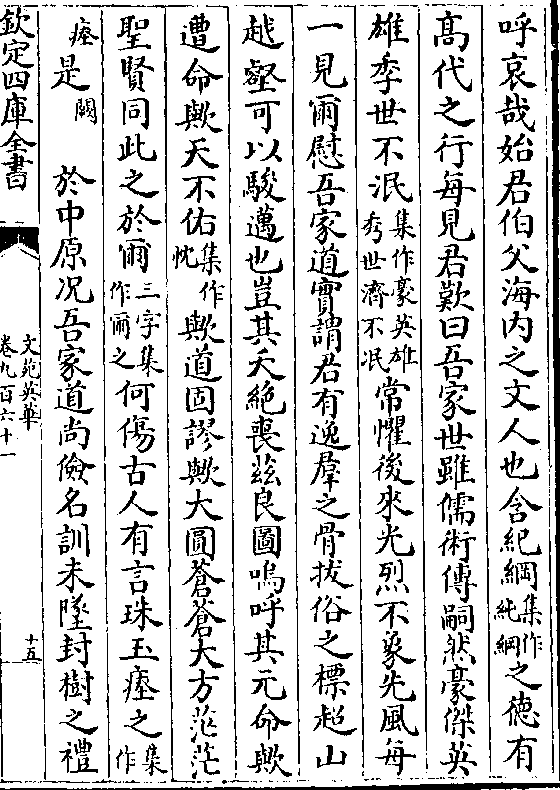 呼哀哉始君伯父海内之文人也含紀綱集作純綱之德有
髙代之行每見君歎曰吾家世雖儒術傳嗣然豪傑英
雄季世不泯集作豪英雄秀世濟不泯常懼後來光烈不象先風每
一見爾慰吾家道實謂君有逸羣之骨拔俗之標超山
越壑可以駿邁也豈其夭絶喪兹良圖嗚呼其元命歟
遭命歟天不佑集作忱歟道固謬歟大圓蒼蒼大方茫茫
聖賢同此之於爾三字集作爾之何傷古人有言珠玉瘞之集作
瘞是闕　於中原况吾家道尚儉名訓未墜封樹之禮
欽定四庫全書
文苑英華
卷九百六十一
十五